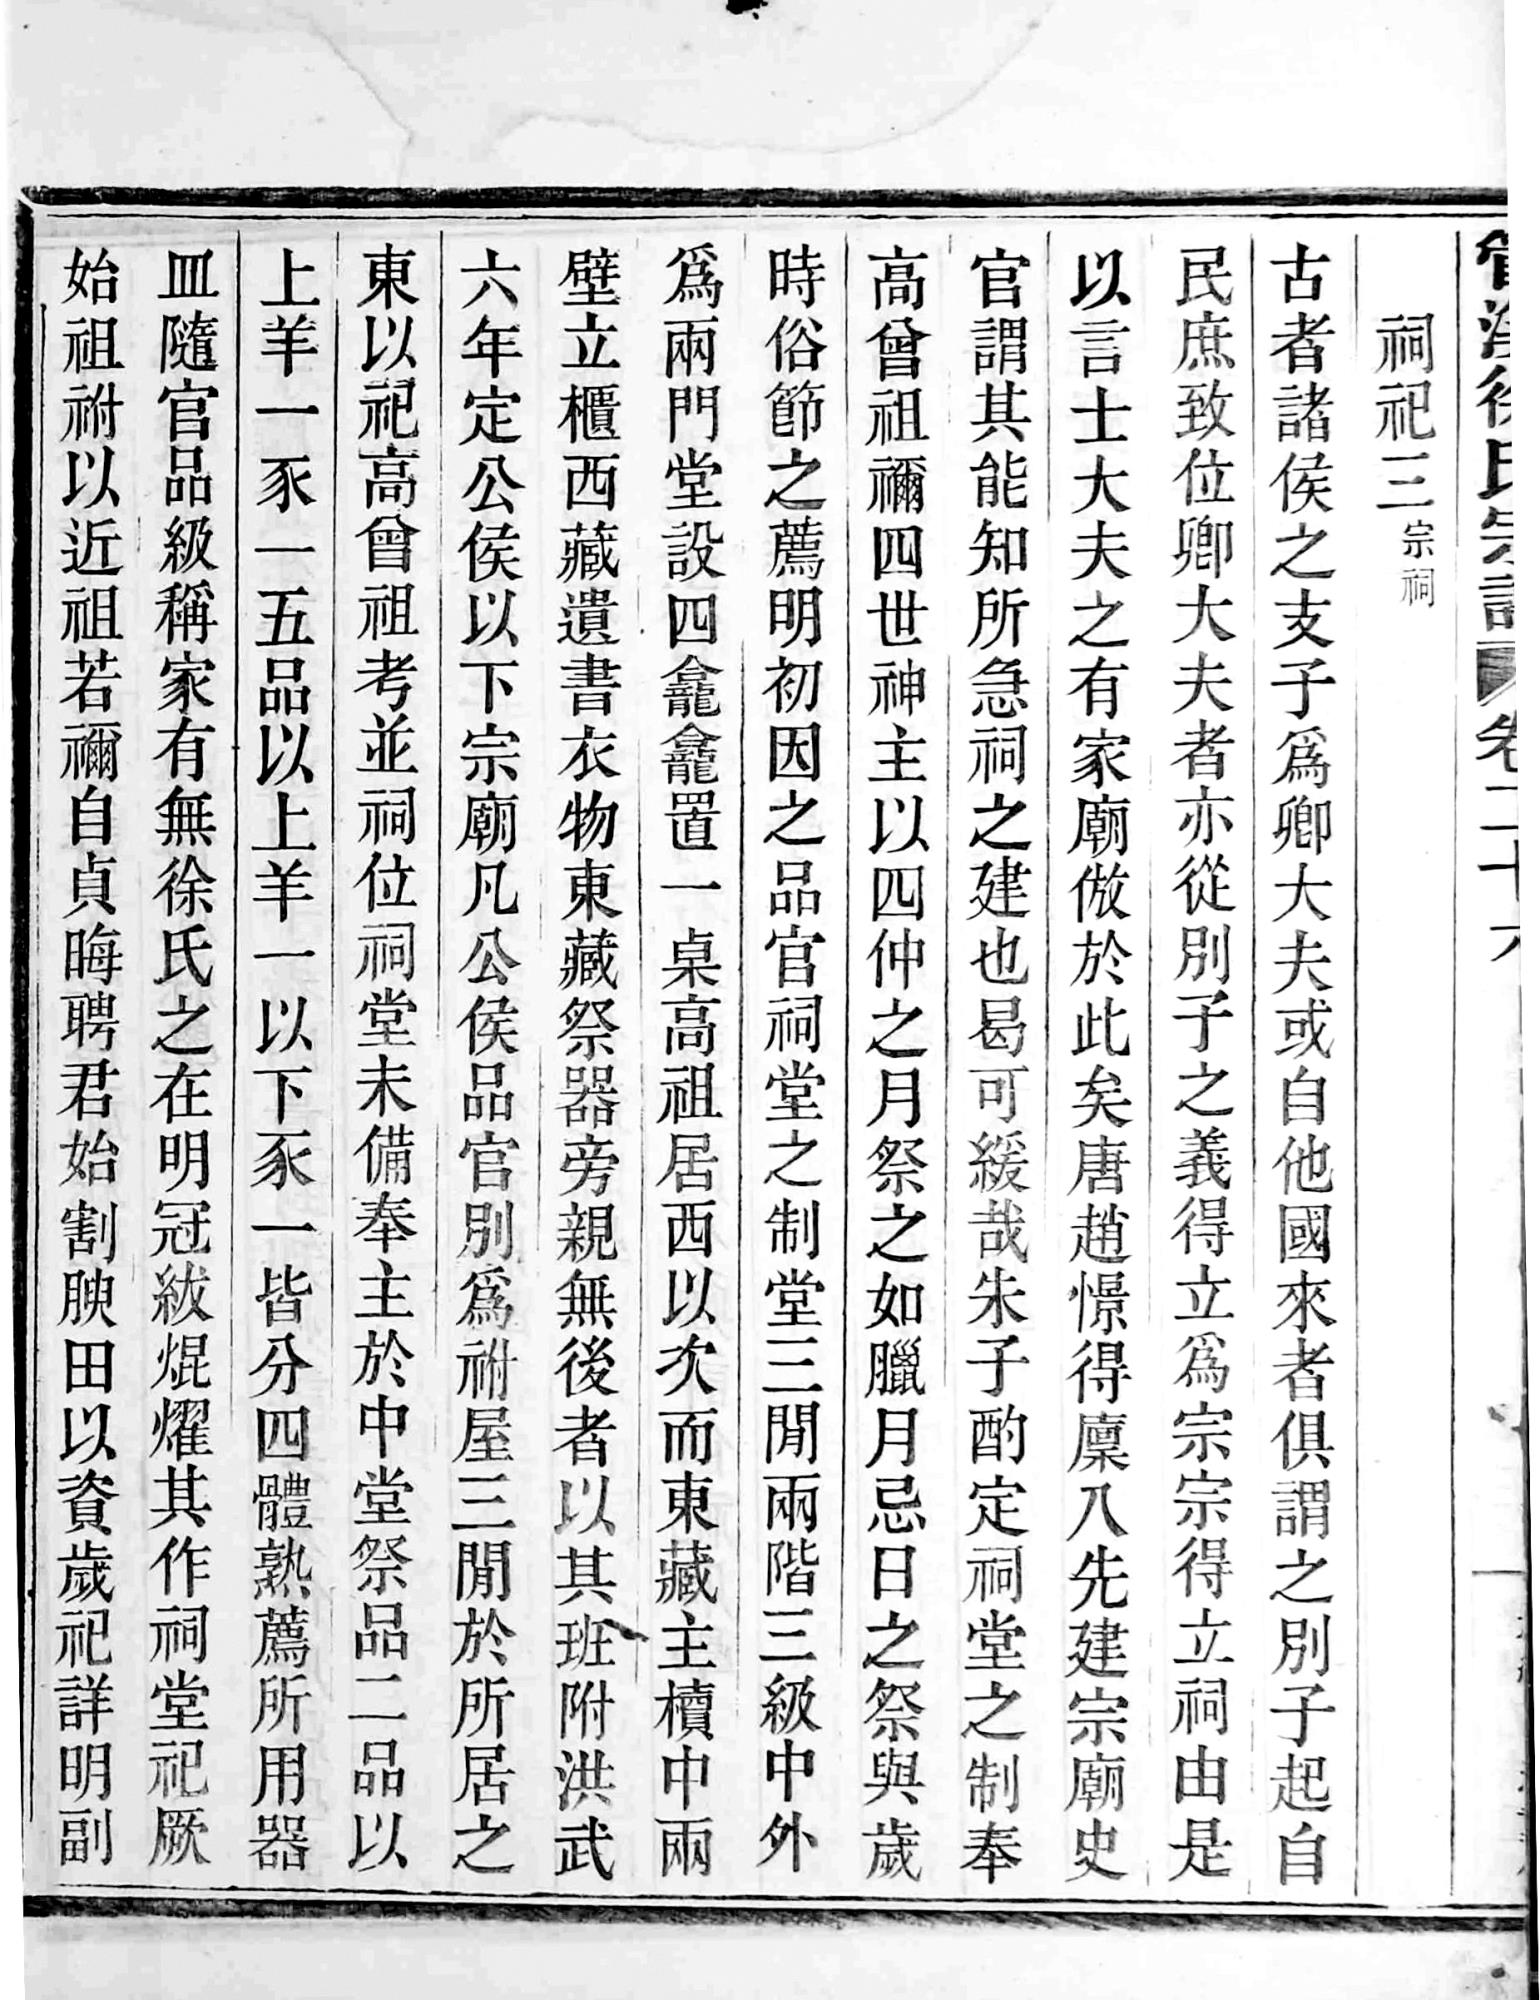 徐氏宗譜 卷二十六
祠祀三 宗祠
古者諸侯之支子爲卿大夫或自他國來者俱謂之別子起自
民庶致位卿大夫者亦從別子之義得立爲宗宗得立祠由是
以言士大夫之有家廟倣於此矣唐趙憬得廩入先建宗廟史
官謂其能知所急祠之建也曷可緩哉朱子酌定祠堂之制奉
高曾祖禰四世神主以四仲之月祭之如臘月忌日之祭與歲
時俗節之薦明初因之品官祠堂之制堂三閒兩階三級中外
爲兩門堂設四龕龕置一桌高祖居西以次而東藏主櫝中兩
壁立櫃西藏遺書衣物東藏祭器旁親無後者以其班附洪武
六年定公侯以下宗廟凡公侯品官別爲祔屋三閒於所居之
東以祀高曾祖考並祠位祠堂未備奉主於中堂祭品二品以
上羊一豕一五品以上羊一以下豕一皆分四體熟薦所用器
皿隨官品級稱家有無徐氏之在明冠紱焜燿其作祠堂祀厥
始祖祔以近祖若禰自貞晦聘君始割腴田以資歲祀詳明副